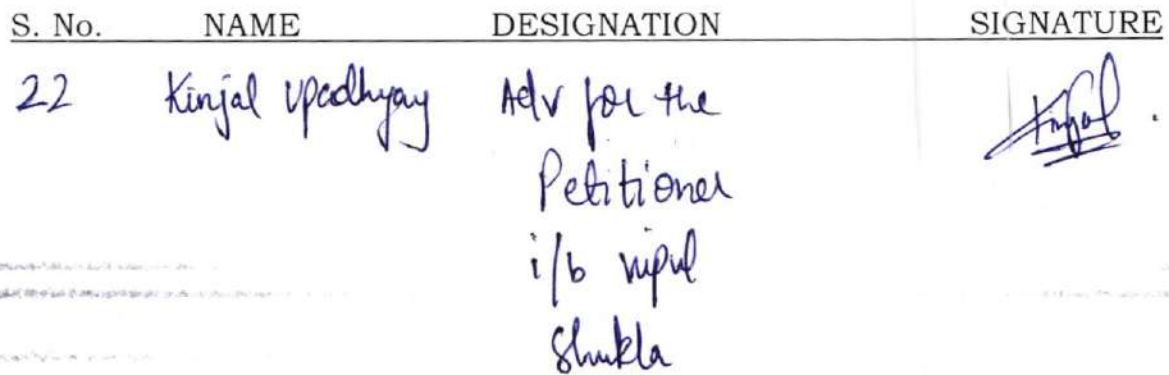 S. No. NAME DESIGNATION SIGNATURE
22 Kinjal Upadhyay Adv for the Kinjal
Petitioner
i/b Vipul
Shukla